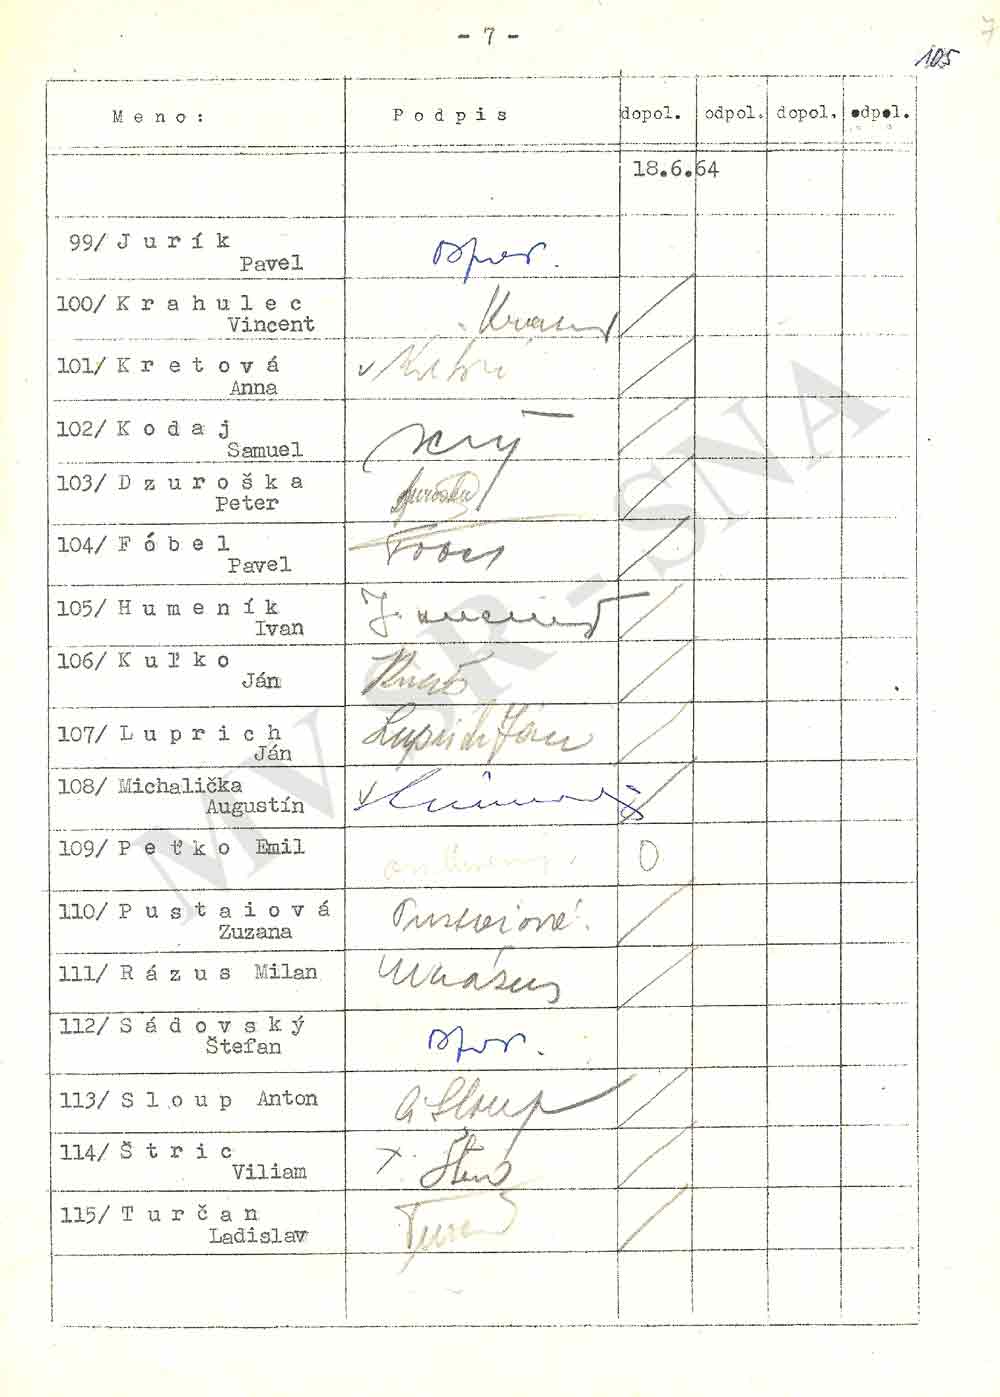 - 7 -
105
Meno: Podpis dopol. odpol. dopol. odpol.
18.6.64
99/ Jurík
Pavel
100/ Krahulec
Vincent
101/ Kretová
Anna
102/ Kodaj
Samuel
103/ Dzuroška
Peter
104/ Fóbel
Pavel
105/ Humeník
Ivan
106/ Kuľko
Ján
107/ Luprich Luprich Ján
Ján
108/ Michalička
Augustín
109/ Peťko Emil O
110/ Pustaiová Pustaiová
Zuzana
111/ Rázus Milan
112/ Sádovský
Štefan
113/ Sloup Anton A Sloup
114/ Štric
Viliam
115/ Turčan
Ladislav
MV SR - SNA